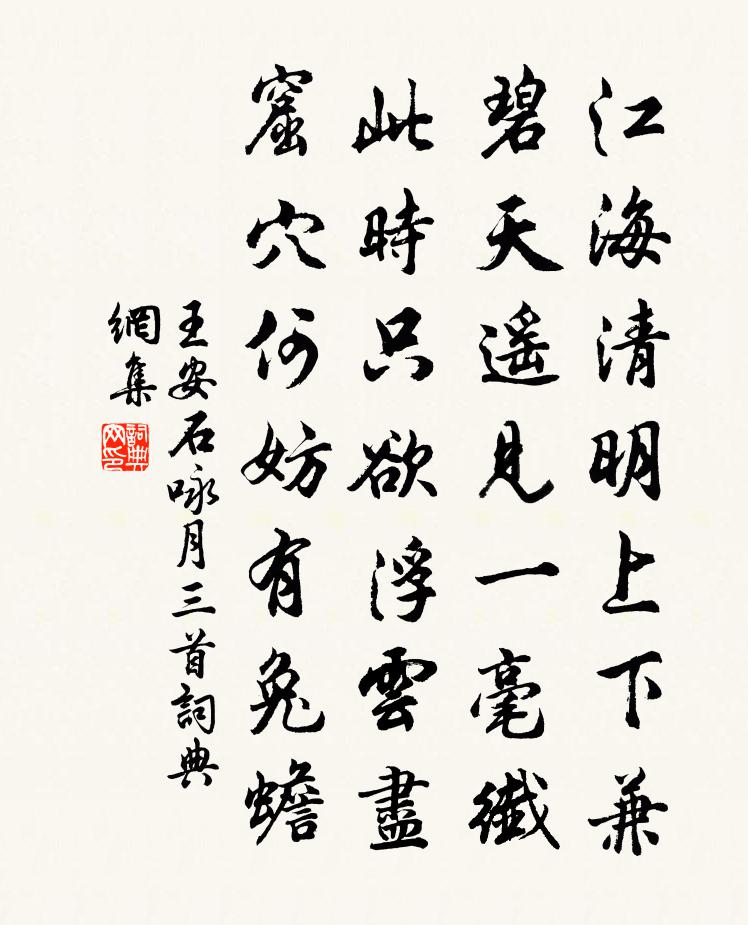 江海清明上下兼
碧天遥見一毫纖
此時只欲浮雲盡
窟穴何妨有兔蟾
王安石咏月三首詞典
網集
詞典網印